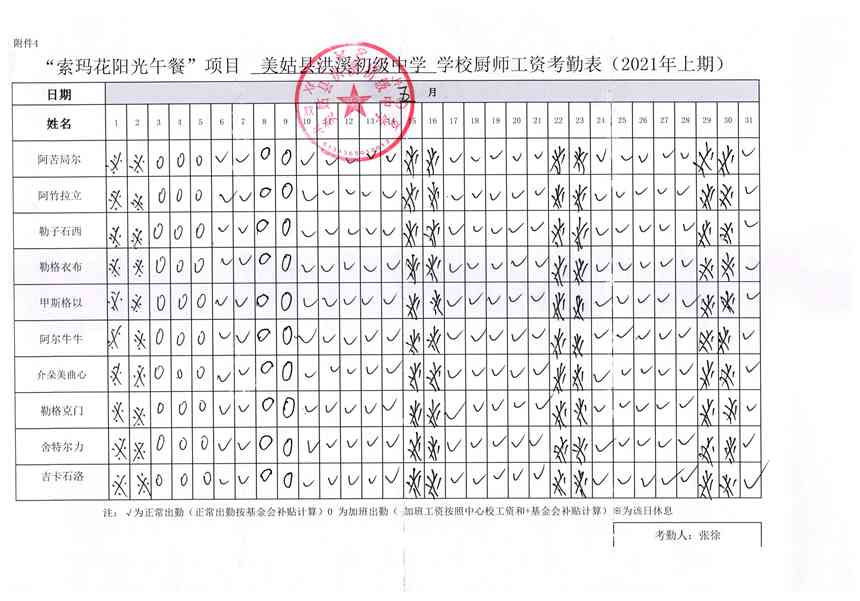 附件4
“索玛花阳光午餐”项目 美姑县洪溪初级中学 学校厨师工资考勤表（2021年上期）
日期 5 月
姓名 1 2 3 4 5 6 7 8 9 10 11 12 13 14 15 16 17 18 19 20 21 22 23 24 25 26 27 28 29 30 31
阿苦局尔 ※ ※ 0 0 0 √ √ 0 0 √ √ √ √ √ ※ ※ √ √ √ √ √ ※ ※ √ √ √ √ √ ※ ※ √
阿竹拉立 ※ ※ 0 0 0 √ √ 0 0 √ √ √ √ √ ※ ※ √ √ √ √ √ ※ ※ √ √ √ √ √ ※ ※ √
勒子石西 ※ ※ 0 0 0 √ √ 0 0 √ √ √ √ √ ※ ※ √ √ √ √ √ ※ ※ √ √ √ √ √ ※ ※ √
勒格衣布 ※ ※ 0 0 0 √ √ 0 0 √ √ √ √ √ ※ ※ √ √ √ √ √ ※ ※ √ √ √ √ √ ※ ※ √
甲斯格以 ※ ※ 0 0 0 √ √ 0 0 √ √ √ √ √ ※ ※ √ √ √ √ √ ※ ※ √ √ √ √ √ ※ ※ √
阿尔牛牛 ※ ※ 0 0 0 √ √ 0 0 √ √ √ √ √ ※ ※ √ √ √ √ √ ※ ※ √ √ √ √ √ ※ ※ √
介朵美曲心 ※ ※ 0 0 0 √ √ 0 0 √ √ √ √ √ ※ ※ √ √ √ √ √ ※ ※ √ √ √ √ √ ※ ※ √
勒格克门 ※ ※ 0 0 0 √ √ 0 0 √ √ √ √ √ ※ ※ √ √ √ √ √ ※ ※ √ √ √ √ √ ※ ※ √
舍特尔力 ※ ※ 0 0 0 √ √ 0 0 √ √ √ √ √ ※ ※ √ √ √ √ √ ※ ※ √ √ √ √ √ ※ ※ √
吉卡石洛 ※ ※ 0 0 0 √ √ 0 0 √ √ √ √ √ ※ ※ √ √ √ √ √ ※ ※ √ √ √ √ √ ※ ※ √
注：√为正常出勤（正常出勤按基金会补贴计算）0 为加班出勤（ 加班工资按照中心校工资和+基金会补贴计算）※为该日休息
考勤人：张徐